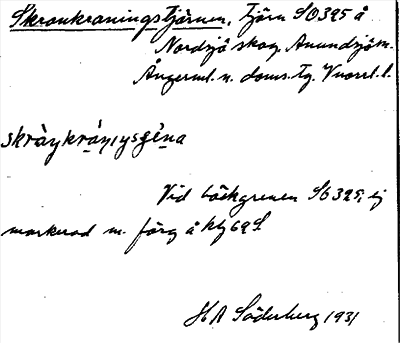 Skrankraningstjärnen, Tjärn SO 395 å
Nordsjö skog, Anundsjö sn.
Ångerml. n. doms. Tg. Vnorrl. l.
skràŋkràni̯ŋsʒæ̀na
Vid bäckgrenen SO 395, ej
markerad m. färg å Kbj 69 S
H A Söderberg 1931